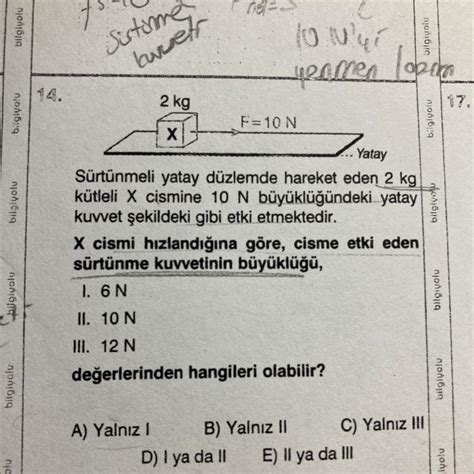 Sürtünme
kuvveti
10 N'yi
yenmen lazım
bilgiyolu
bilgiyolu
14.
17.
2 kg
X
F=10 N
Yatay
Sürtünmeli yatay düzlemde hareket eden 2 kg
kütleli X cismine 10 N büyüklüğündeki yatay
kuvvet şekildeki gibi etki etmektedir.
X cismi hızlandığına göre, cisme etki eden
sürtünme kuvvetinin büyüklüğü,
I. 6 N
II. 10 N
III. 12 N
değerlerinden hangileri olabilir?
A) Yalnız I B) Yalnız II C) Yalnız III
D) I ya da II E) II ya da III
bilgiyolu
bilgiyolu
bilgiyolu
bilgiyolu
bilgiyolu
bilgiyolu
bilgiyolu